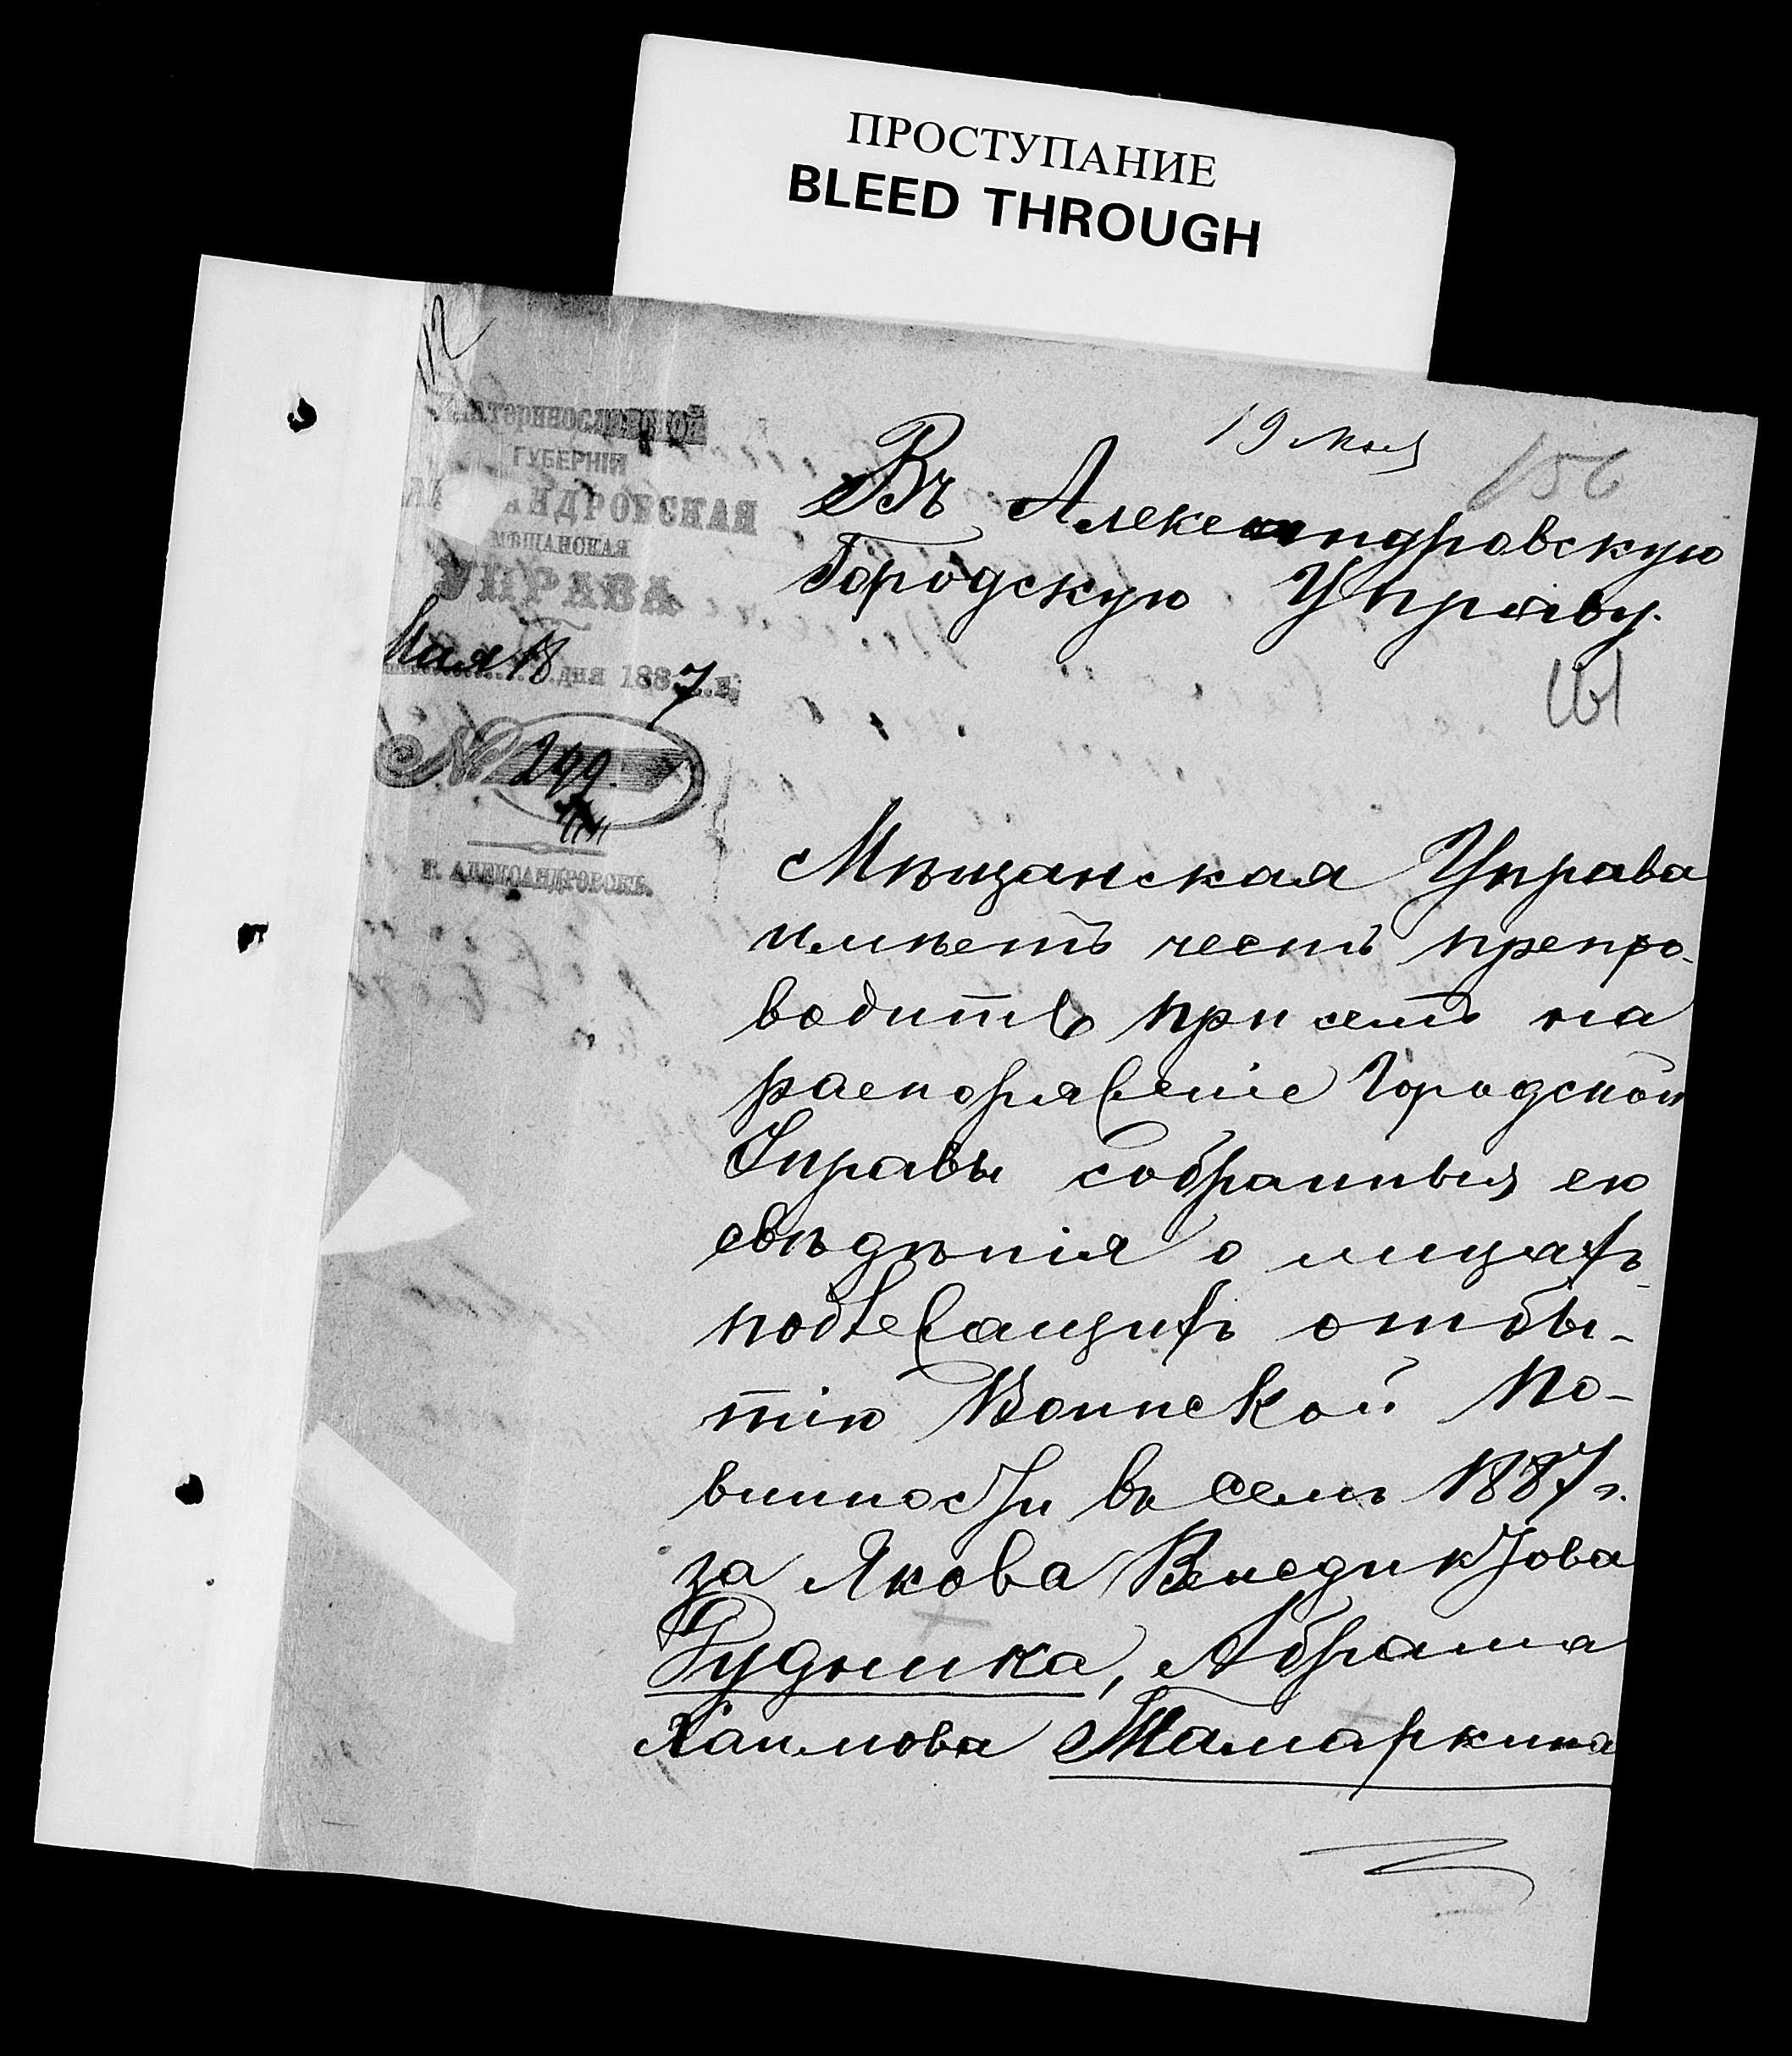 ПРОСТУПАНИЕ
BLEED THROUGH
112
19 мая
156
Екатеринославской
ГУБЕРНІИ
АЛЕКСАНДРОВСКАЯ
МѢЩАНСКАЯ
УПРАВА
Мая 18 дня 1887 г.
№ 299.
Г. АЛЕКСАНДРОВСКЪ.
Въ Александровскую
Городскую Управу.
161
Мѣщанская Управа
имѣетъ честь препро-
водить при семъ на
распоряженіе Городской
Управы собранныя ею
свѣдѣнія о лицахъ
подлежащихъ отбы-
тію Воинской По-
винности въ семъ 1887 г.
за Якова Венедиктова
Рудника, Абрама
Хаимова Тамаркина